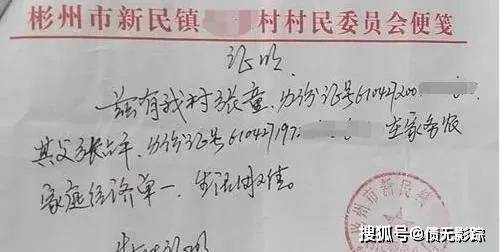 彬州市新民镇村村民委员会便笺
证明
兹有我村张童，身份证号610427200
其父张占平，身份证号610427197 在家务农
家庭经济单一，生活困难。
特此证明
彬州市新民镇
搜狐号@债无影踪